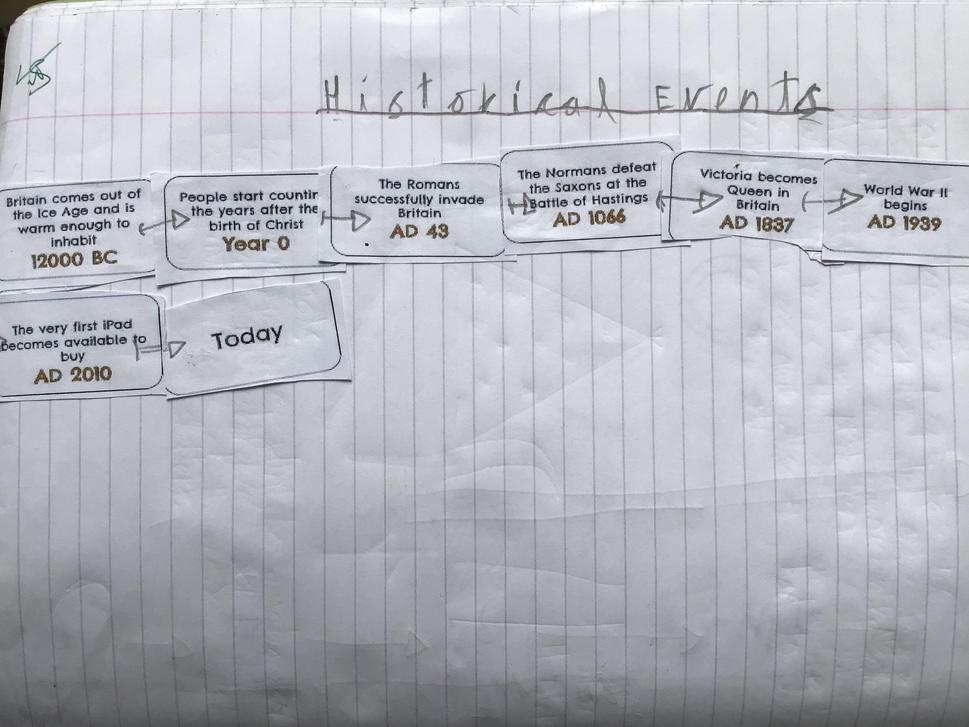 Historical Events
Britain comes out of
the Ice Age and is
warm enough to
inhabit
12000 BC
People start countin
the years after the
birth of Christ
Year 0
The Romans
successfully invade
Britain
AD 43
The Normans defeat
the Saxons at the
Battle of Hastings
AD 1066
Victoria becomes
Queen in
Britain
AD 1837
World War II
begins
AD 1939
The very first iPad
becomes available to
buy
AD 2010
Today